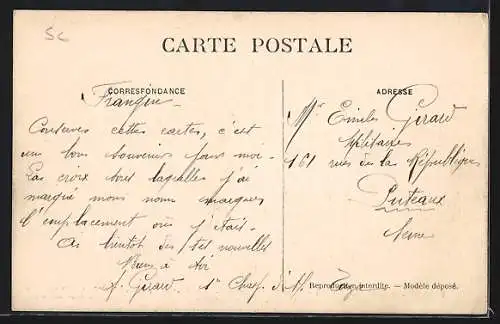 SC
CARTE POSTALE
CORRESPONDANCE
ADRESSE
Frangin
Conserves cettes cartes, c'est
un bon souvenir pour moi.
Las croix sous laquelles j'ai
marqué nous nous marquer
l'emplacement où j'étais.
As bientôt des tes nouvelles
à toi
Girard
1er Chas.
Mr Emile Girard
Militaire
161 rue de la République
Puteaux
Seine
Reproduction interdite. — Modèle déposé.